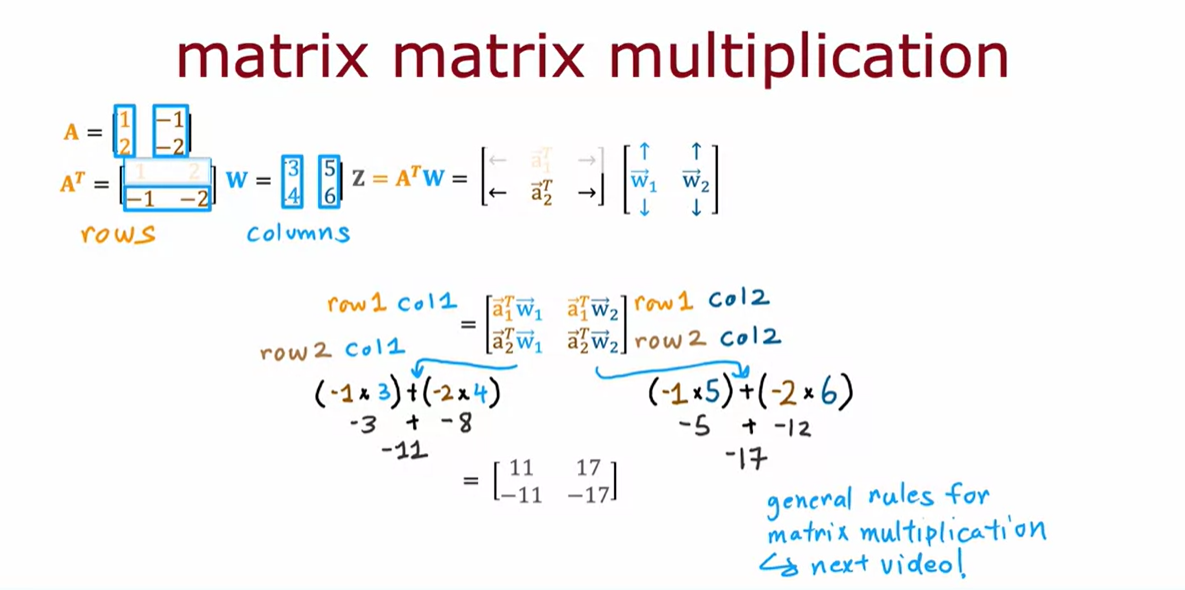 matrix matrix multiplication
A = [1 -1
2 -2]
Aᵀ = [1 2
-1 -2] W = [3 5
4 6] Z = AᵀW = [← a⃗₁ᵀ →
← a⃗₂ᵀ →] [↑ ↑
w⃗₁ w⃗₂
↓ ↓]
rows columns
row1 col1 = [a⃗₁ᵀw⃗₁ a⃗₁ᵀw⃗₂] row1 col2
row2 col1 [a⃗₂ᵀw⃗₁ a⃗₂ᵀw⃗₂] row2 col2
(-1 × 3) + (-2 × 4) (-1 × 5) + (-2 × 6)
-3 + -8 -5 + -12
-11 -17
= [11 17
-11 -17]
general rules for
matrix multiplication
↪ next video!